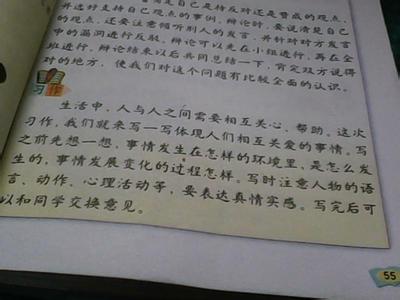 是自己是持反对还是赞成的观点,
并选好支持自己观点的事例,辩论时,要说清楚自己
的观点,还要注意倾听别人的发言,并针对对方发言
中的漏洞进行反驳。辩论可以先在小组进行,再在全
班进行。辩论结束以后共同总结一下,肯定双方说得
对的地方,使我们对这个问题有比较全面的认识。
习作
生活中,人与人之间需要相互关心、帮助。这次
习作,我们就来写一写体现人们相互关爱的事情。写
之前先想一想,事情发生在怎样的环境里,是怎么发
生的,事情发展变化的过程怎样。写时注意人物的语
言、动作、心理活动等,要表达真情实感。写完后可
以和同学交换意见。
55